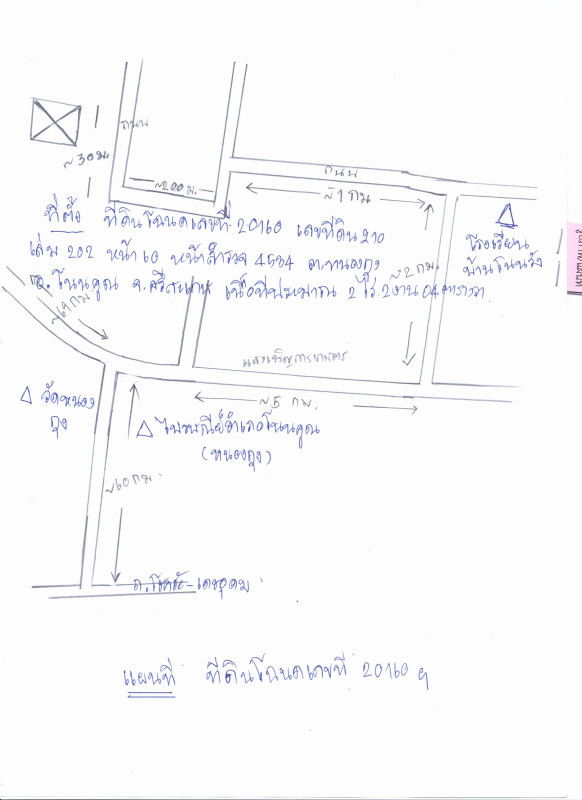 ถนน
~30ม.
~200 ม.
ถนน
~1 กม
ที่ตั้ง ที่ดินโฉนดเลขที่ 20160 เลขที่ดิน 210
เล่ม 202 หน้า 60 หน้าสำรวจ 4564 ต.หนองกุง
อ.โนนคูณ จ.ศรีสะเกษ เนื้อที่ประมาณ 2 ไร่ 2 งาน 04 ตารางวา
โรงเรียน
บ้านโนนรัง
~2 กม.
กม
แสงเจริญการเกษตร
~5 กม.
วัดหนอง
กุง
ไปรษณีย์อำเภอโนนคูณ
(หนองกุง)
~60 กม.
ถ.โชคชัย-เดชอุดม
แผนที่ ที่ดินโฉนดเลขที่ 20160 ฯ